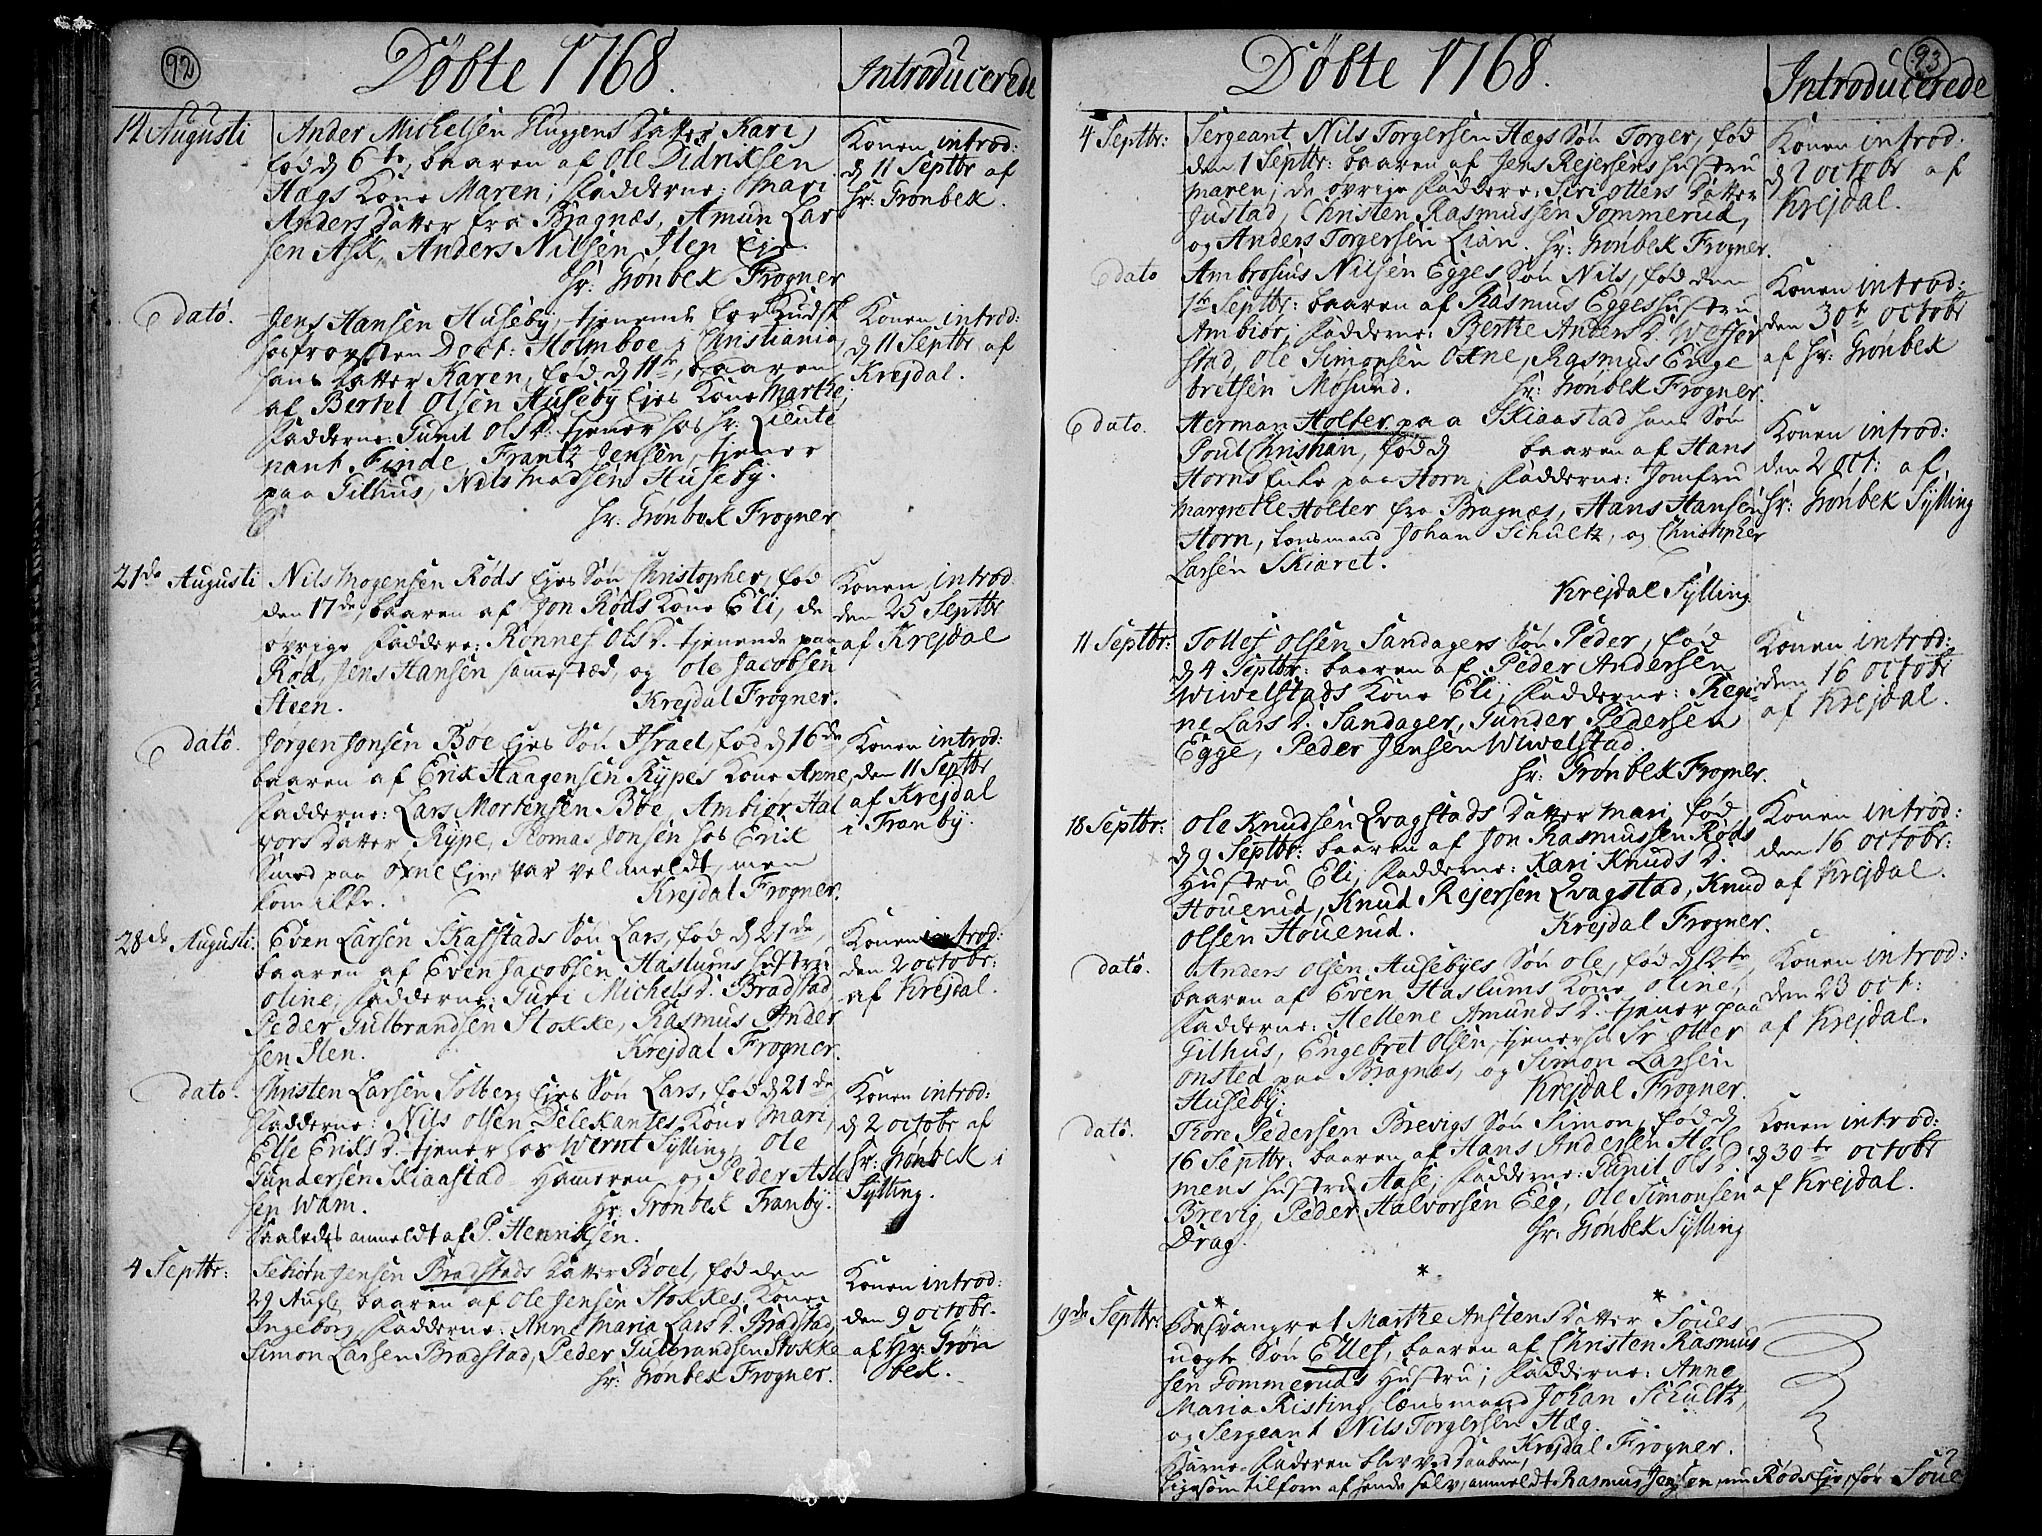 92
Döbte 1768.
Introducerede
14 Augusti
Ander Michelsen Huggens Datter Kari,
fød d 6te, baaren af Ole Didriksen
Hægs Kone Maren; Fadderne: Mari
Anders Datter fra Bragnæs, Amun Lar
sen Ask, Anders Nilsen Sten Eje.
hr: Grönbek Frogner
Konen introd:
d 11 Septbr af
hr: Grönbek.
dato.
Jens Hansen Huseby, tjenende for Kudsk
hos Provsten Doct: Holmboe i Christiania,
hans Datter Karen, fød d 11te, baaren
af Bertel Olsen Huseby Ejes Kone Marthe;
Fadderne: Gunil Ols D. tjener hos hr: Lieute
nant Finde, Frantz Jensen, tjener
paa Gilhus, Nils Madsen Huseby.
hr: Grönbek Frogner
Konen introd:
d 11 Septbr af
Krejdal.
21de Augusti
Nils Mogensen Røds Ejes Søn Christopher, fød
den 17de, baaren af Jon Røds Kone Eli, de
øvrige Faddere: Rønnef Ols D. tjenende paa
Rød, Jens Hansen sammested, og Ole Jacobsen
Steen. Krejdal Frogner.
Konen introd:
den 25 Septbr
af Krejdal
dato.
Jørgen Jonsen Bøe Ejes Søn Israel, fød d 16de
baaren af Erik Haagensen Rypes Kone Anne,
Fadderne: Lars Mortensen Bøe, Ambiør Hal
vors Datter Rype, Thomas Jonsen hos Erik
Smed paa Oxne Eje, var vel meldt, men
kom ikke. Krejdal Frogner.
Konen introd:
den 11 Septbr
af Krejdal
i Tranby.
28de Augusti.
Even Larsen Skafstads Søn Lars, fød d 21de,
baaren af Even Jacobsen Haslums Hustru
Oline; Fadderne: Guri Michels D. Bradstad,
Peder Gulbrandsen Stokke, Rasmus Ander
sen Sten. Krejdal Frogner.
Konen introd:
den 2 octobr:
af Krejdal.
dato.
Christen Larsen Solberg Ejes Søn Lars, fød d 21de,
Fadderne: Nils Olsen Delekantes Kone Mari,
Else Eriks D. tjener hos Wernt Sylling, Ole
Gundersen Skiaastad Hameren, og Peder Asle
sen Wam. hr: Grönbek Tranby.
Saaledes anmeldt af P. Henriksen.
Konen introd:
d 2 octobr af
hr: Grönbek i
Sylling.
4 Septbr:
Sehiøn Jensen Bradstads Datter Boel, fød den
29 Aug, baaren af Ole Jensen Stokkes Kone
Ingeborg, Fadderne: Anne Maria Lars D. Bradstad,
Simon Larsen Bradstad, Peder Gulbrandsen Stokke
hr: Grönbek Frogner.
Konen introd:
den 9 octobr.
af Hr: Grön
bek.
93
Döbte 1768.
Introducerede
4 Septbr:
Sergeant Nils Torgersen Hægs Søn Torger, fød
den 1 Septbr: baaren af Jens Rejersens Hustru
Maren; de øvrige Faddere: Siri Otters Datter
Justad, Christen Rasmussen Gommerud,
og Anders Torgersen Lian. hr: Grönbek Frogner.
Konen introd:
d 2 octobr af
Krejdal.
dato
Ambrosius Nilsen Egges Søn Nils, fød den
1te Septbr: baaren af Rasmus Egges Hustru
Ambiør; Fadderne: Berthe Anders D.
stad, Ole Simonsen Oxne, Rasmus Enge
bretsen Mosund. hr: Grönbek Frogner.
Konen introd:
den 30te octobr
af hr: Grönbek
dato.
Herman Holter paa Skiaastad hans Søn
Poul Christian, fød d baaren af Hans
Horns Enke paa Horn; Fadderne: Jomfru
Margrethe Holter fra Bragnæs, Hans Hansen
Horn, Lensmand Johan Schultz, og Christopher
Larsen Skiæret.
Krejdal Sylling
Konen introd:
den 2 oct: af
hr: Grönbek Sylling
11 Septbr:
Tollef Olsen Sandagers Søn Peder, fød
d 4 Septbr: baaren af Peder Andersen
Wiwelstads Kone Eli; Fadderne: Regi
ne Lars D. Sandager, Gunder Pedersen
Egge, Peder Jensen Wiwelstad.
hr: Grönbek Frogner.
Konen introd:
den 16 octobr
af Krejdal.
18 Septbr:
Ole Knudsen Qvagstads Datter Mari, fød
d 9 Septbr: baaren af Jon Rasmussen Røds
Hustru Eli; Fadderne: Kari Knuds D.
Houerud, Knud Rejersen Qvagstad, Knud
Olsen Houerud. Krejdal Frogner.
Konen introd:
den 16 octobr:
af Krejdal.
dato.
Anders Olsen Husebyes Søn Ole, fød d 12te,
baaren af Even Haslums Kone Oline,
Fadderne: Hellene Amunds D. tjener paa
Gilhus, Engebret Olsen, tjener hos Sr Otter
Onsted paa Bragnæs, og Simon Larsen
Huseby. Krejdal Frogner.
Konen introd:
den 23 oct:
af Krejdal.
dato.
Thore Pedersen Brevigs Søn Simon, fød d
16 Septbr: baaren af Hans Andersen Hol
mens Hustru Aase; Fadderne: Gunil Ols D.
Brevig, Peder Halvorsen Eeg, Ole Simonsen
Drag. hr: Grönbek Sylling
Konen introd:
d 30te octobr
af Krejdal.
*
19de Septbr:
* *
Besvangret Marthe Anstens Datter Soues
uægte Søn Ellef, baaren af Christen Rasmus
sen Gommeruds Hustru; Fadderne: Anne
Maria Risting, Lensmand Johan Schultz,
og Sergeant Nils Torgersen Hæg.
Krejdal Frogner.
Barne-Faderen blev ved Daaben,
ligesom tilforn af hende selv, anmeldt Rasmus Jensen, nu Røds Eje, før Soue